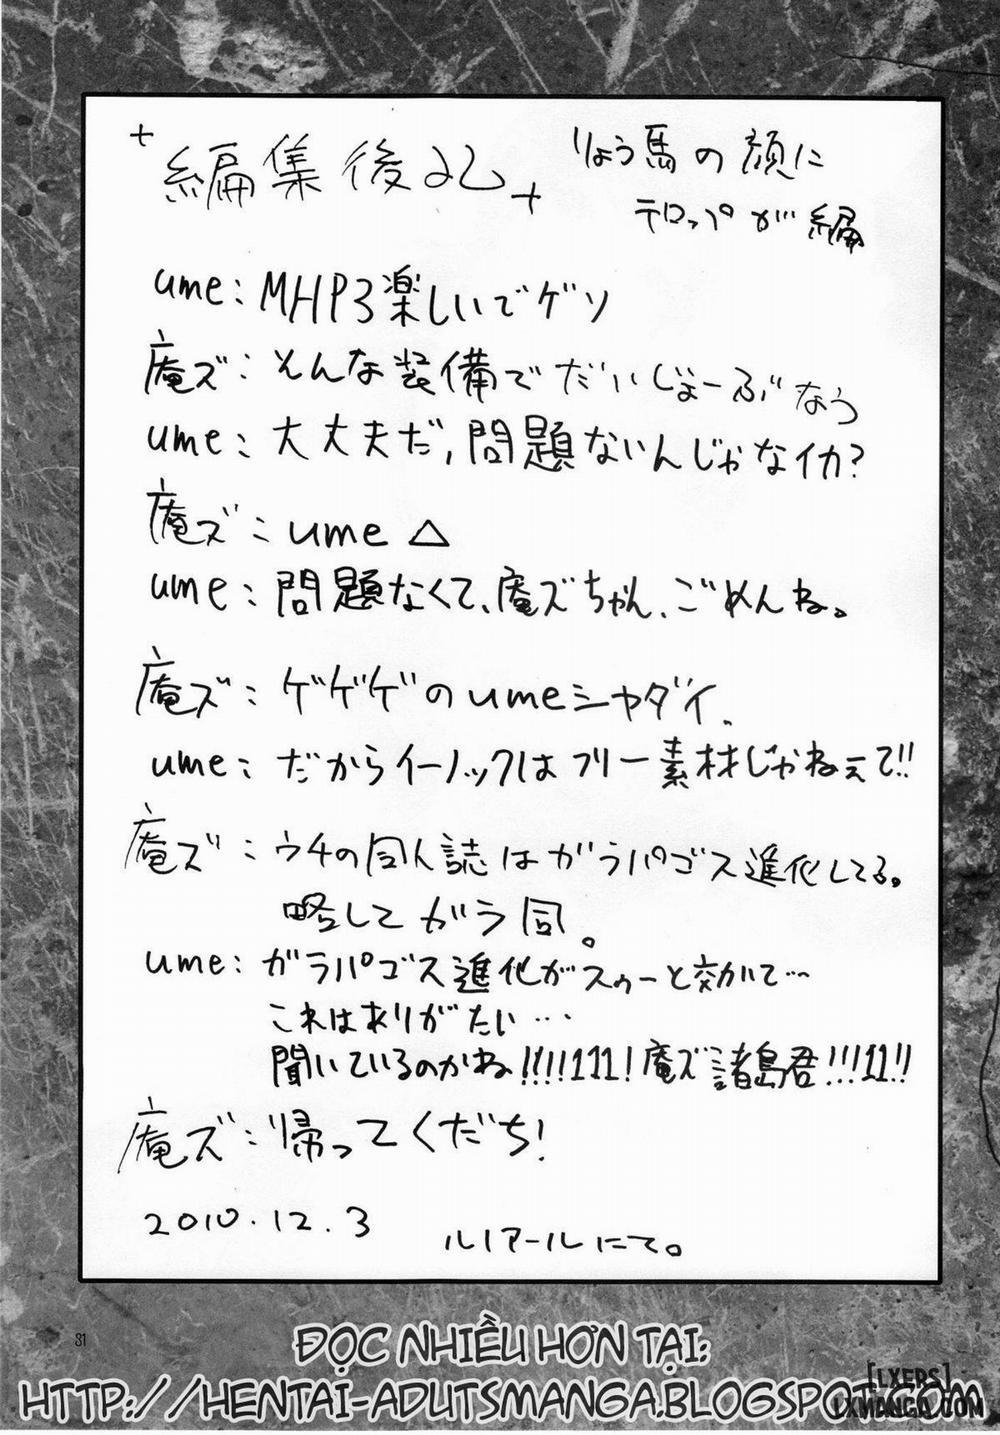 +編集後記+
りょう馬の顔に
テロップが編
ume:MHP3楽しいでゲソ
庵ズ:そんな装備でだいじょーぶなう
ume:大丈夫だ,問題ないんじゃなイカ?
庵ズ:ume△
ume:問題なくて、庵ズちゃん、ごめんね。
庵ズ:ゲゲゲのumeシャダイ、
ume:だからイーノックはフリー素材じゃねぇて!!
庵ズ:ウチの同人誌はガラパゴス進化してる。
略してガラ同。
ume:ガラパゴス進化がスゥーと効いて…
これはありがたい…
聞いているのかね!!!!111!庵ズ諸島君!!!11!!
庵ズ:帰ってくだち!
2010.12.3
ルノアールにて。
31
ĐỌC NHIỀU HƠN TẠI:
HTTP://HENTAI-ADUTSMANGA.BLOGSPOT.COM
[LXERS]
LXMANGA.COM